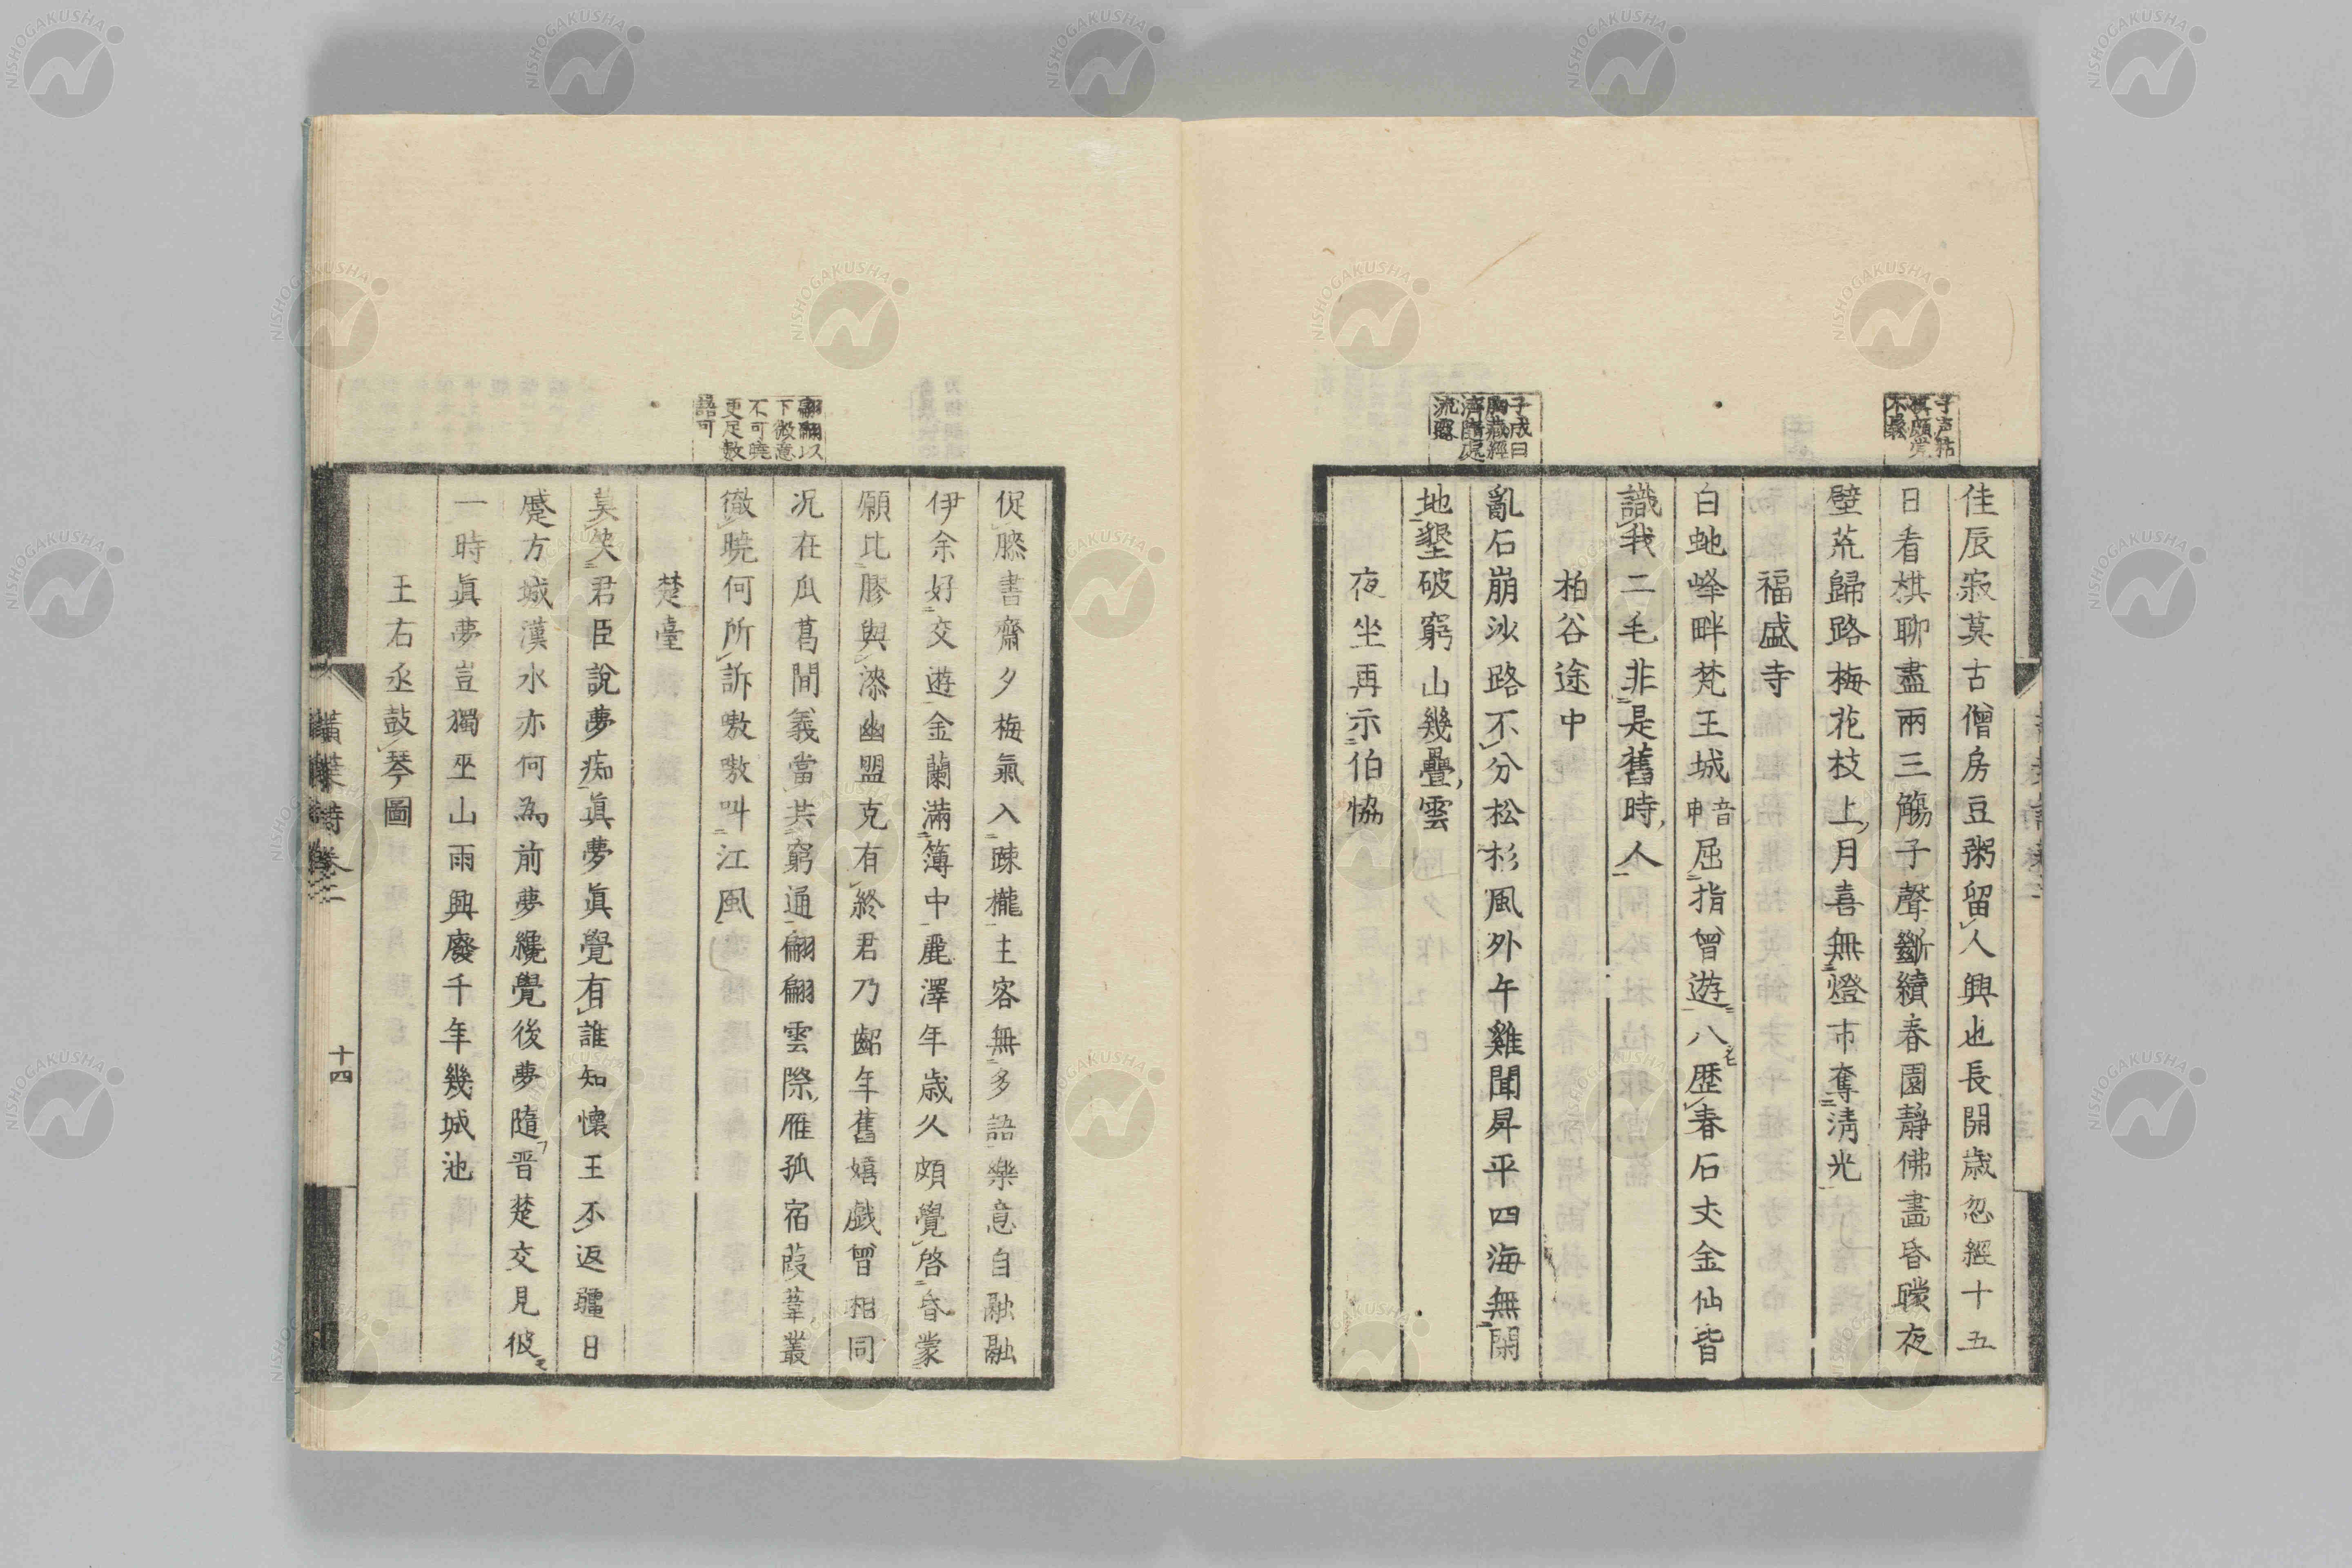 佳辰寂莫古僧房豆粥留人興也長開歳忽經十五
日看棋聊盡兩三觴子聲斷續春園靜佛畵昏曚夜
壁荒歸路梅花枝上月喜無燈市奪淸光
福盛寺
白虵峰畔梵王城音申屈指曾遊八歴春石丈金仙皆
識我二毛非是舊時人
柏谷途中
亂石崩沙路不分松杉風外午雞聞昇平四海無閑
地墾破窮山幾疊雲
夜坐再示伯恊
子成曰
胸藏經
濟觸處
流露
促膝書齋夕梅氣入疎櫳主客無多語樂意自融融
伊余好交遊金蘭滿簿中麗澤年歳久頗覺啓昏蒙
願比膠與漆幽盟克有終君乃齠年舊嬉戯曾相同
况在瓜葛間義當共窮通翩翩雲際雁孤宿葭葦叢
徹曉何所訴嗷嗷叫江風
楚臺
莫笑君臣說夢痴眞夢眞覺有誰知懐王不返疆日
蹙方城漢水亦何為前夢纔覺後夢隨晋楚交見彼
一時眞夢豈獨巫山雨興廢千年幾城池
王右丞鼓琴圖
翩翩以
下微意
不可曉
更足數
語可
黃葉詩 卷二
十四
NISHOGAKUSHA